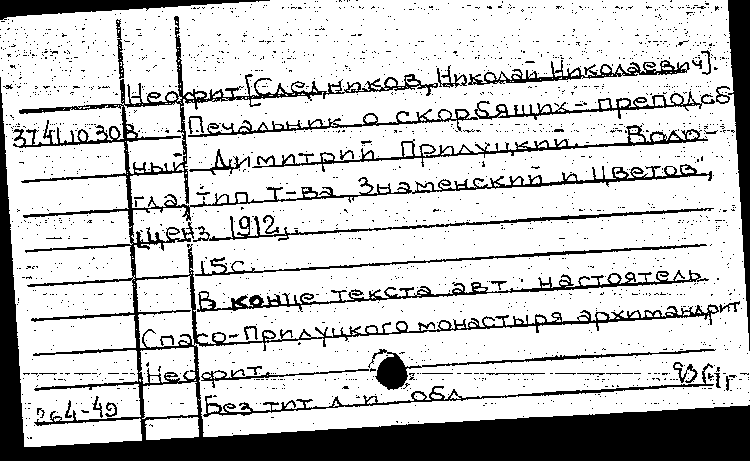 Неофит [Следников, Николай Николаевич].
37.41.10.303 Печальник о скорбящих - преподоб
ный Димитрий Прилуцкий. Воло-
гда, тип. Т-ва "Знаменский и Цветов",
ценз. 1912 г.
15с.
В конце текста авт.: настоятель
Спасо-Прилуцкого монастыря архимандрит
Неофит.
264-49 Без тит. л. и обл.